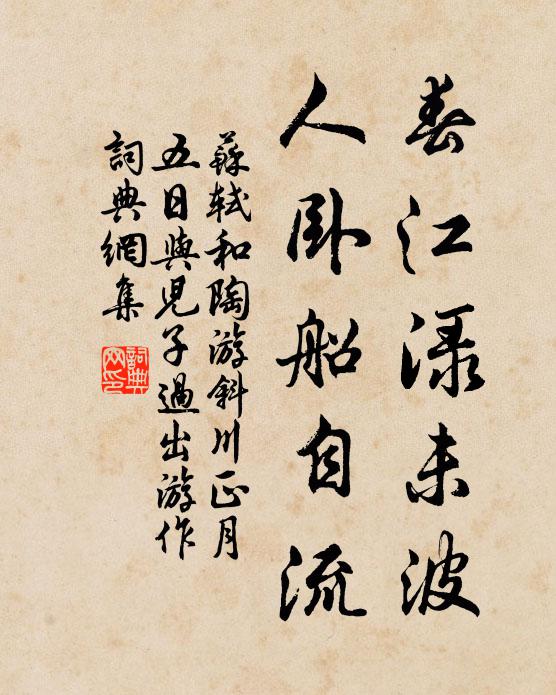 春江淥未波
人卧船自流
蘇軾和陶游斜川正月
五日與兒子過出游作
詞典網集
詞典
网印